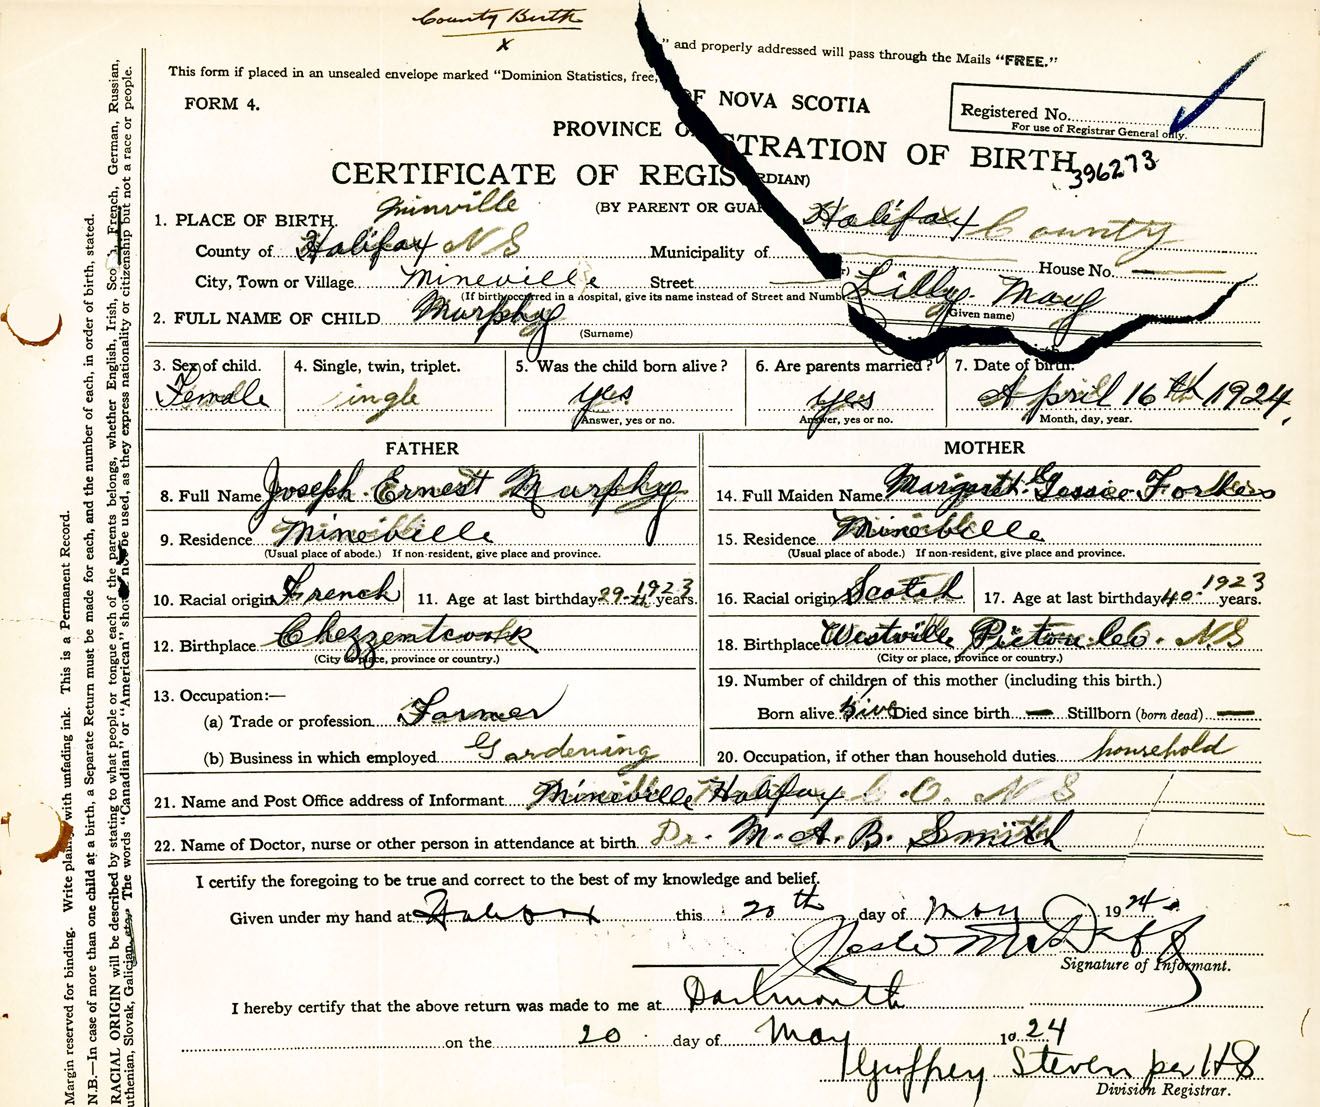 County Birth
x
" and properly addressed will pass through the Mails "FREE."
This form if placed in an unsealed envelope marked "Dominion Statistics, free,
FORM 4.
Registered No.
For use of Registrar General only.
OF NOVA SCOTIA
PROVINCE O
CERTIFICATE OF REGISTRATION OF BIRTH
396273
(BY PARENT OR GUARDIAN)
1. PLACE OF BIRTH.
County of Halifax N S Municipality of Halifax County
City, Town or Village Mineville Street House No. —
(If birth occurred in a hospital, give its name instead of Street and Numb r)
2. FULL NAME OF CHILD Murphy Lilly May
(Surname) (Given name)
3. Sex of child. 4. Single, twin, triplet. 5. Was the child born alive? 6. Are parents married? 7. Date of birth.
Female ingle yes yes April 16th 1924.
Answer, yes or no. Answer, yes or no. Month, day, year.
FATHER MOTHER
8. Full Name Joseph Ernest Murphy 14. Full Maiden Name Margaret Jessie Forbes
9. Residence Mineville 15. Residence Mineville
(Usual place of abode.) If non-resident, give place and province. (Usual place of abode.) If non-resident, give place and province.
10. Racial origin French 11. Age at last birthday 29 1923 years. 16. Racial origin Scotch 17. Age at last birthday 40 1923 years.
12. Birthplace Chezzentcook 18. Birthplace Westville Pictou Co. N.S
(City or place, province or country.) (City or place, province or country.)
13. Occupation:— 19. Number of children of this mother (including this birth.)
(a) Trade or profession Farmer Born alive five Died since birth — Stillborn (born dead) —
(b) Business in which employed Gardening 20. Occupation, if other than household duties household
21. Name and Post Office address of Informant Mineville Halifax C.O. N S
22. Name of Doctor, nurse or other person in attendance at birth Dr. M. A. B. Smith
I certify the foregoing to be true and correct to the best of my knowledge and belief.
Given under my hand at Halifax this 20th day of May 1924.
Signature of Informant.
I hereby certify that the above return was made to me at Dartmouth
on the 20 day of May 1924
Geoffrey Steven per HS
Division Registrar.
Margin reserved for binding. Write plainly with unfading ink. This is a Permanent Record.
N.B.—In case of more than one child at a birth, a Separate Return must be made for each, and the number of each, in order of birth, stated.
RACIAL ORIGIN will be described by stating to what people or tongue each of the parents belongs, whether English, Irish, Sco , French, German, Russian,
uthenian, Slovak, Galician, etc. The words "Canadian" or "American" should not be used, as they express nationality or citizenship but not a race or people.